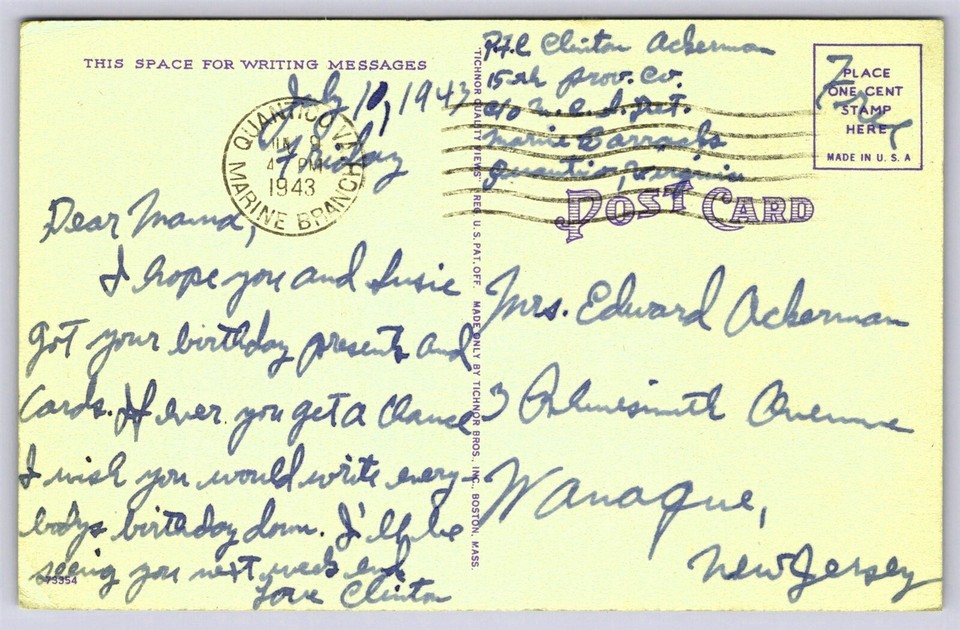 THIS SPACE FOR WRITING MESSAGES
July 10, 1943
Friday
QUANTICO VA.
4 PM
1943
MARINE BRANCH
Dear Mama,
I hope you and Susie
got your birthday presents and
Cards. If ever you get a Chance
I wish you would write every-
bodys birthday down. I'll be
seeing you next week end
Love Clinton
73354
"TICHNOR QUALITY VIEWS" REG. U.S. PAT. OFF. MADE ONLY BY TICHNOR BROS., INC., BOSTON, MASS.
Pfc Clinton Ackerman
15th Prov. Co.
c/o Det.
Marine Barracks
Quantico, Virginia
PLACE
ONE CENT
STAMP
HERE
MADE IN U.S.A
Free
POST CARD
Mrs. Edward Ackerman
3 Avenue
Wanaque,
New Jersey